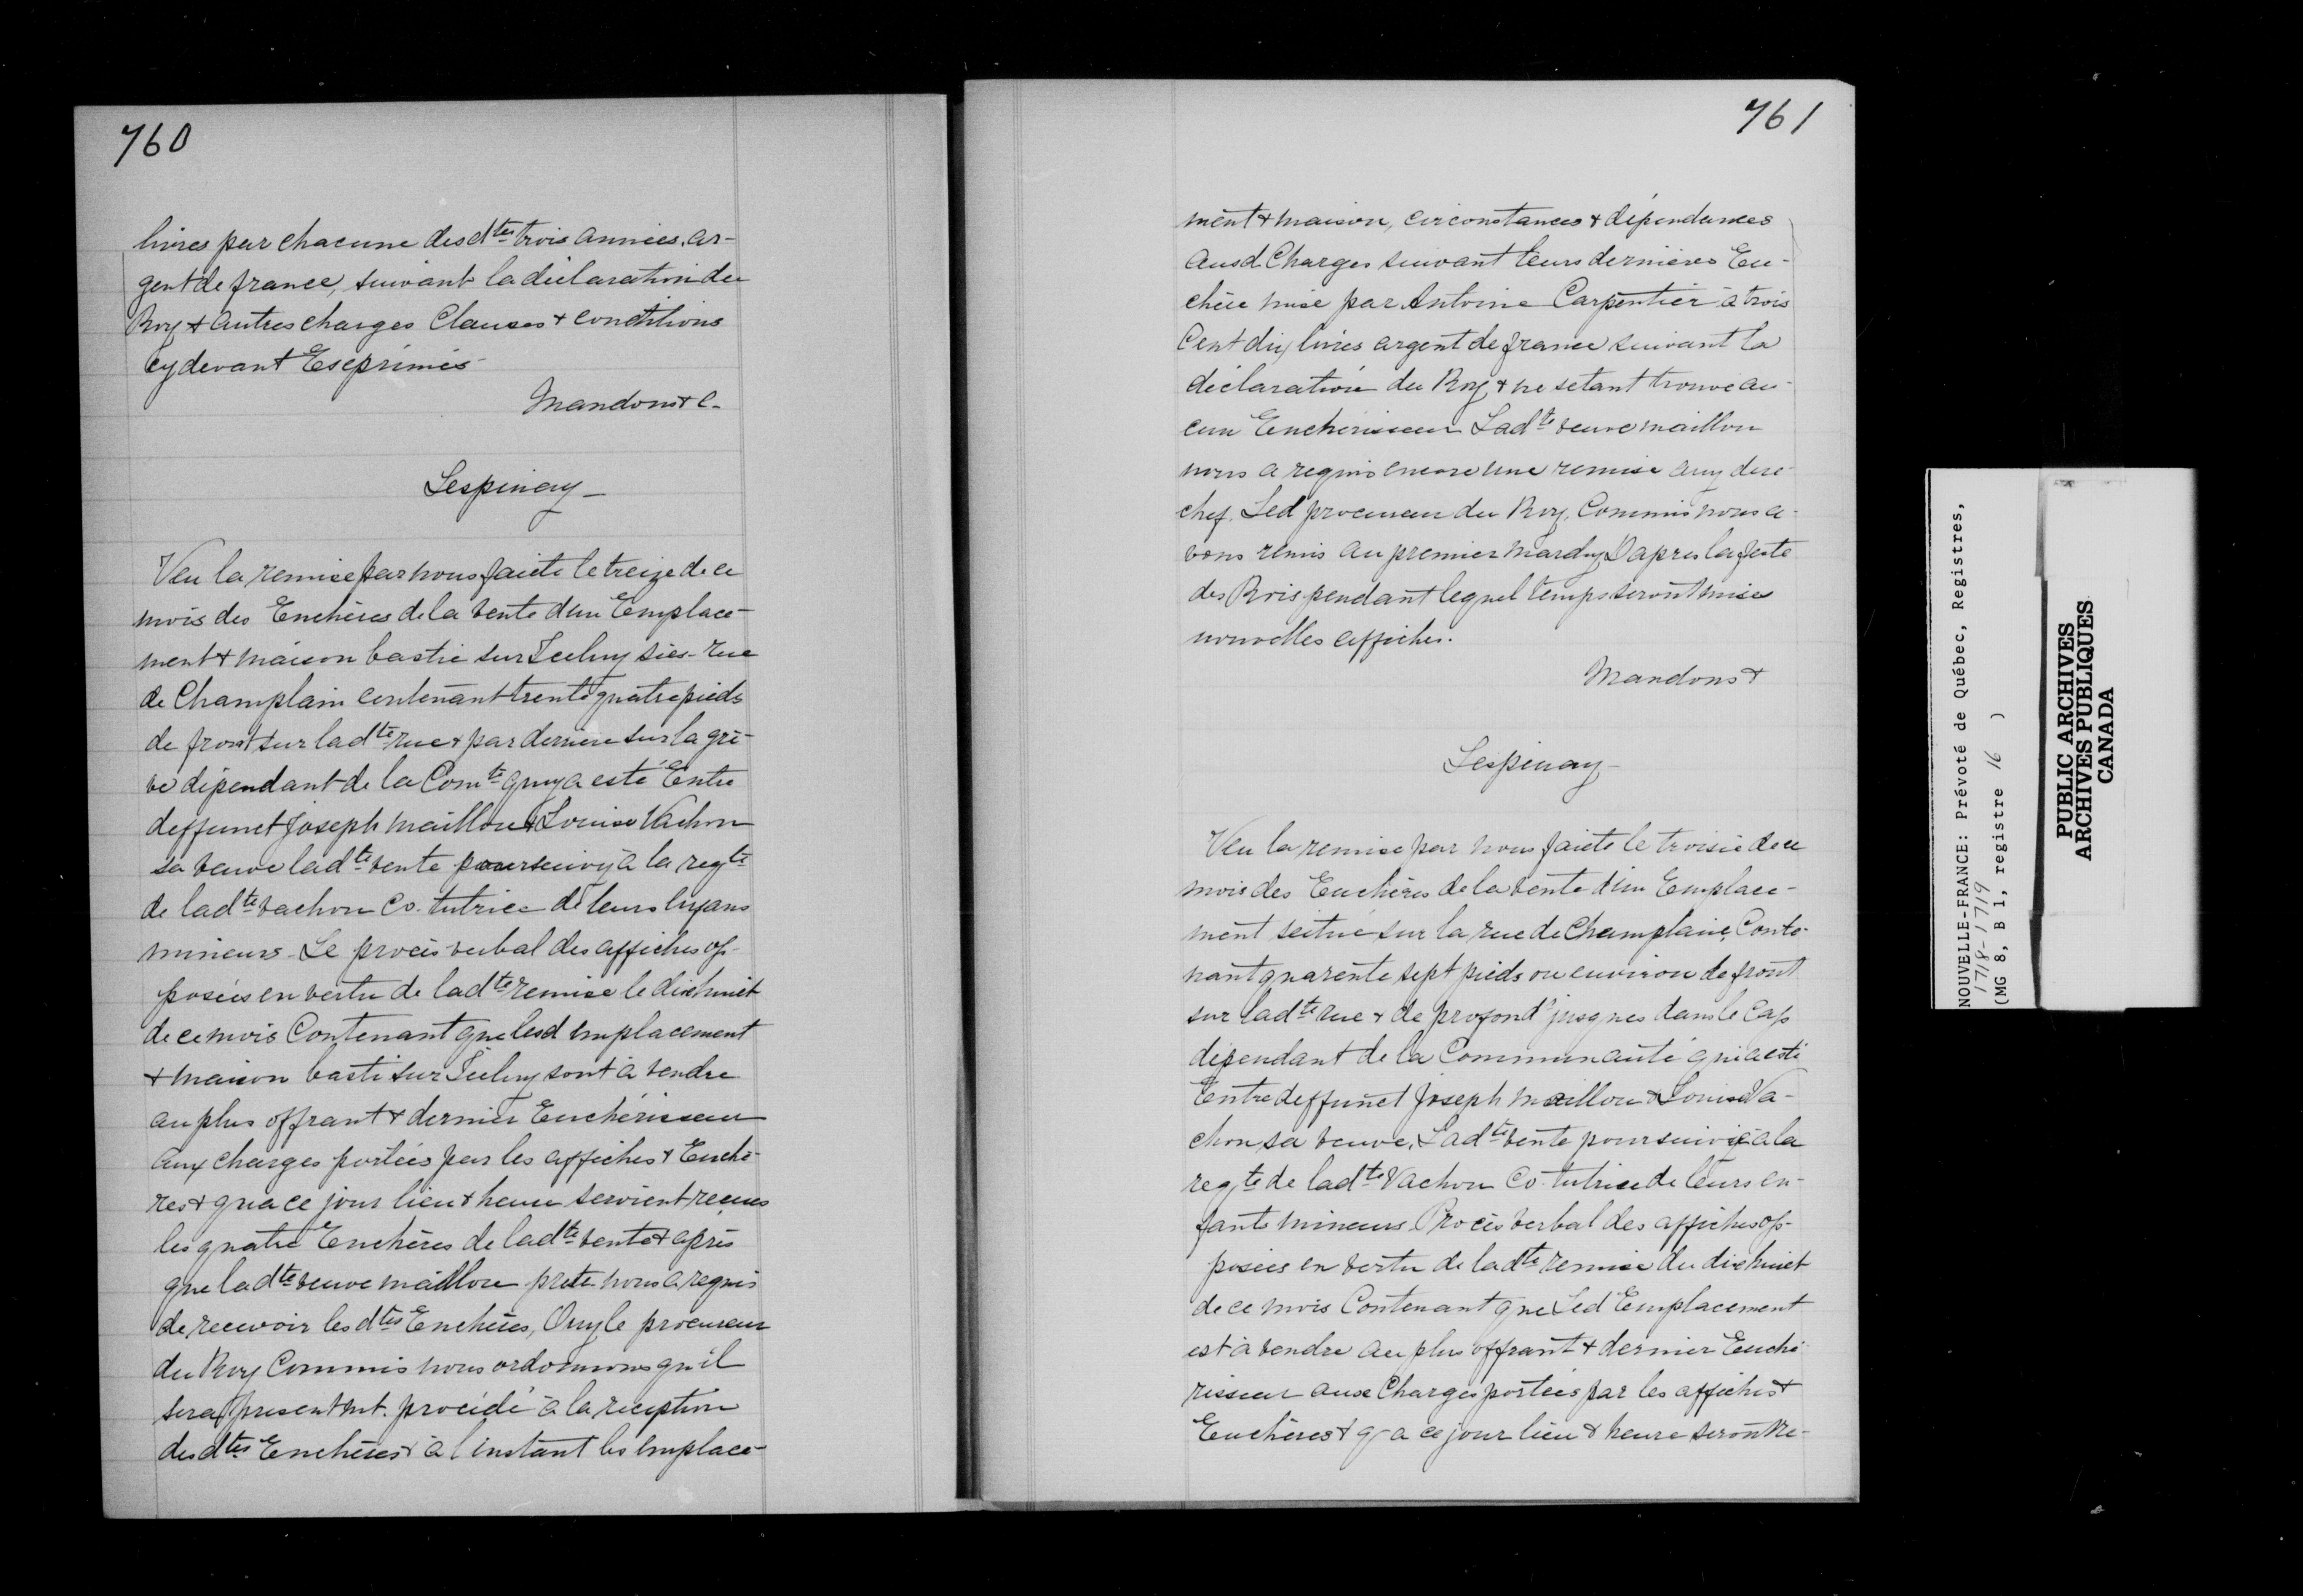 760
livres par chacune desdtes trois années, ar-
gent de france, suivant la déclaration du
Roy & autres charges Clauses & conditions
cy devant Exeprimés
Mandons & c.
Lespinay
Veu la remise par nous faicte le treize de ce
mois des Enchères de la vente d'un Emplace-
ment & maison bastie sur Iceluy sies rue
de Champlain contenant trente quatre pieds
de front sur ladte rue & par derriere sur la grè-
ve dépendant de la Comte quy a esté Entre
deffunct Joseph Maillou & Louise Vachon
sa veuve ladte vente poursuivy à la reqte
de ladte vachon Co. tutrice de leurs
mineurs. Le procès verbal des affiches op-
posées en vertu de ladte remise le dixhuict
de ce mois Contenant que lesd emplacement
& maison basti sur Iceluy sont à vendre
au plus offrant & dernier Enchérisseur
aux charges portées par les affiches & Enchè-
res & qu'a ce jour lieu & heure seroient reçues
les quatre Enchères de ladte vente & après
que ladte veuve maillou prste nous a requis
de recevoir lesdtes Enchères, Ouy le procureur
du Roy Commis nous ordonnons qu'il
sera presentmt. procédé à la réception
desdtes Enchères & à l'instant les emplace-
761
ment & maison, circonstances & dépendances
ausd Charges suivant leurs dernières En-
chère mise par Antoine Carpentier à trois
Cent dix livres argent de france suivant la
déclaration du Roy & ne setant trouvé au-
cun Enchérisseur Ladte veuve maillou
nous a requis encore une remise ouy dere-
chef. Led procureur du Roy, Commis nous a-
vons remis au premier mardy D'apres la feste
des Rois pendant lequel temps seront mises
nouvelles affiches.
Mandons &
Lespinay
Veu la remise par nous faicte le troisie de ce
mois des Enchères de la vente d'un Emplace-
ment scitué sur la rue de Champlain, Conte-
nant quarente sept pieds ou environ de front
sur ladte rue & de profond jusques dans le Cap
dépendant de la Communauté qui a esté
Entre deffunct Joseph Maillou & Louise Va-
chon sa veuve, Ladte vente poursuivie à la
reqte de ladte Vachon Co. tutrice de leurs en-
fants mineurs Procès verbal des affiches op-
posées en vertu de ladte remise du dixhuict
de ce mois Contenant que Led Emplacement
est à vendre au plus offrant & dernier Enché-
risseur aux Charges portées par les affiches &
Enchères & q a ce jour lieu & heure seront re-
NOUVELLE-FRANCE: Prévoté de Québec, Registres,
1718-1719
(MG 8, B 1, registre 16 )
PUBLIC ARCHIVES
ARCHIVES PUBLIQUES
CANADA